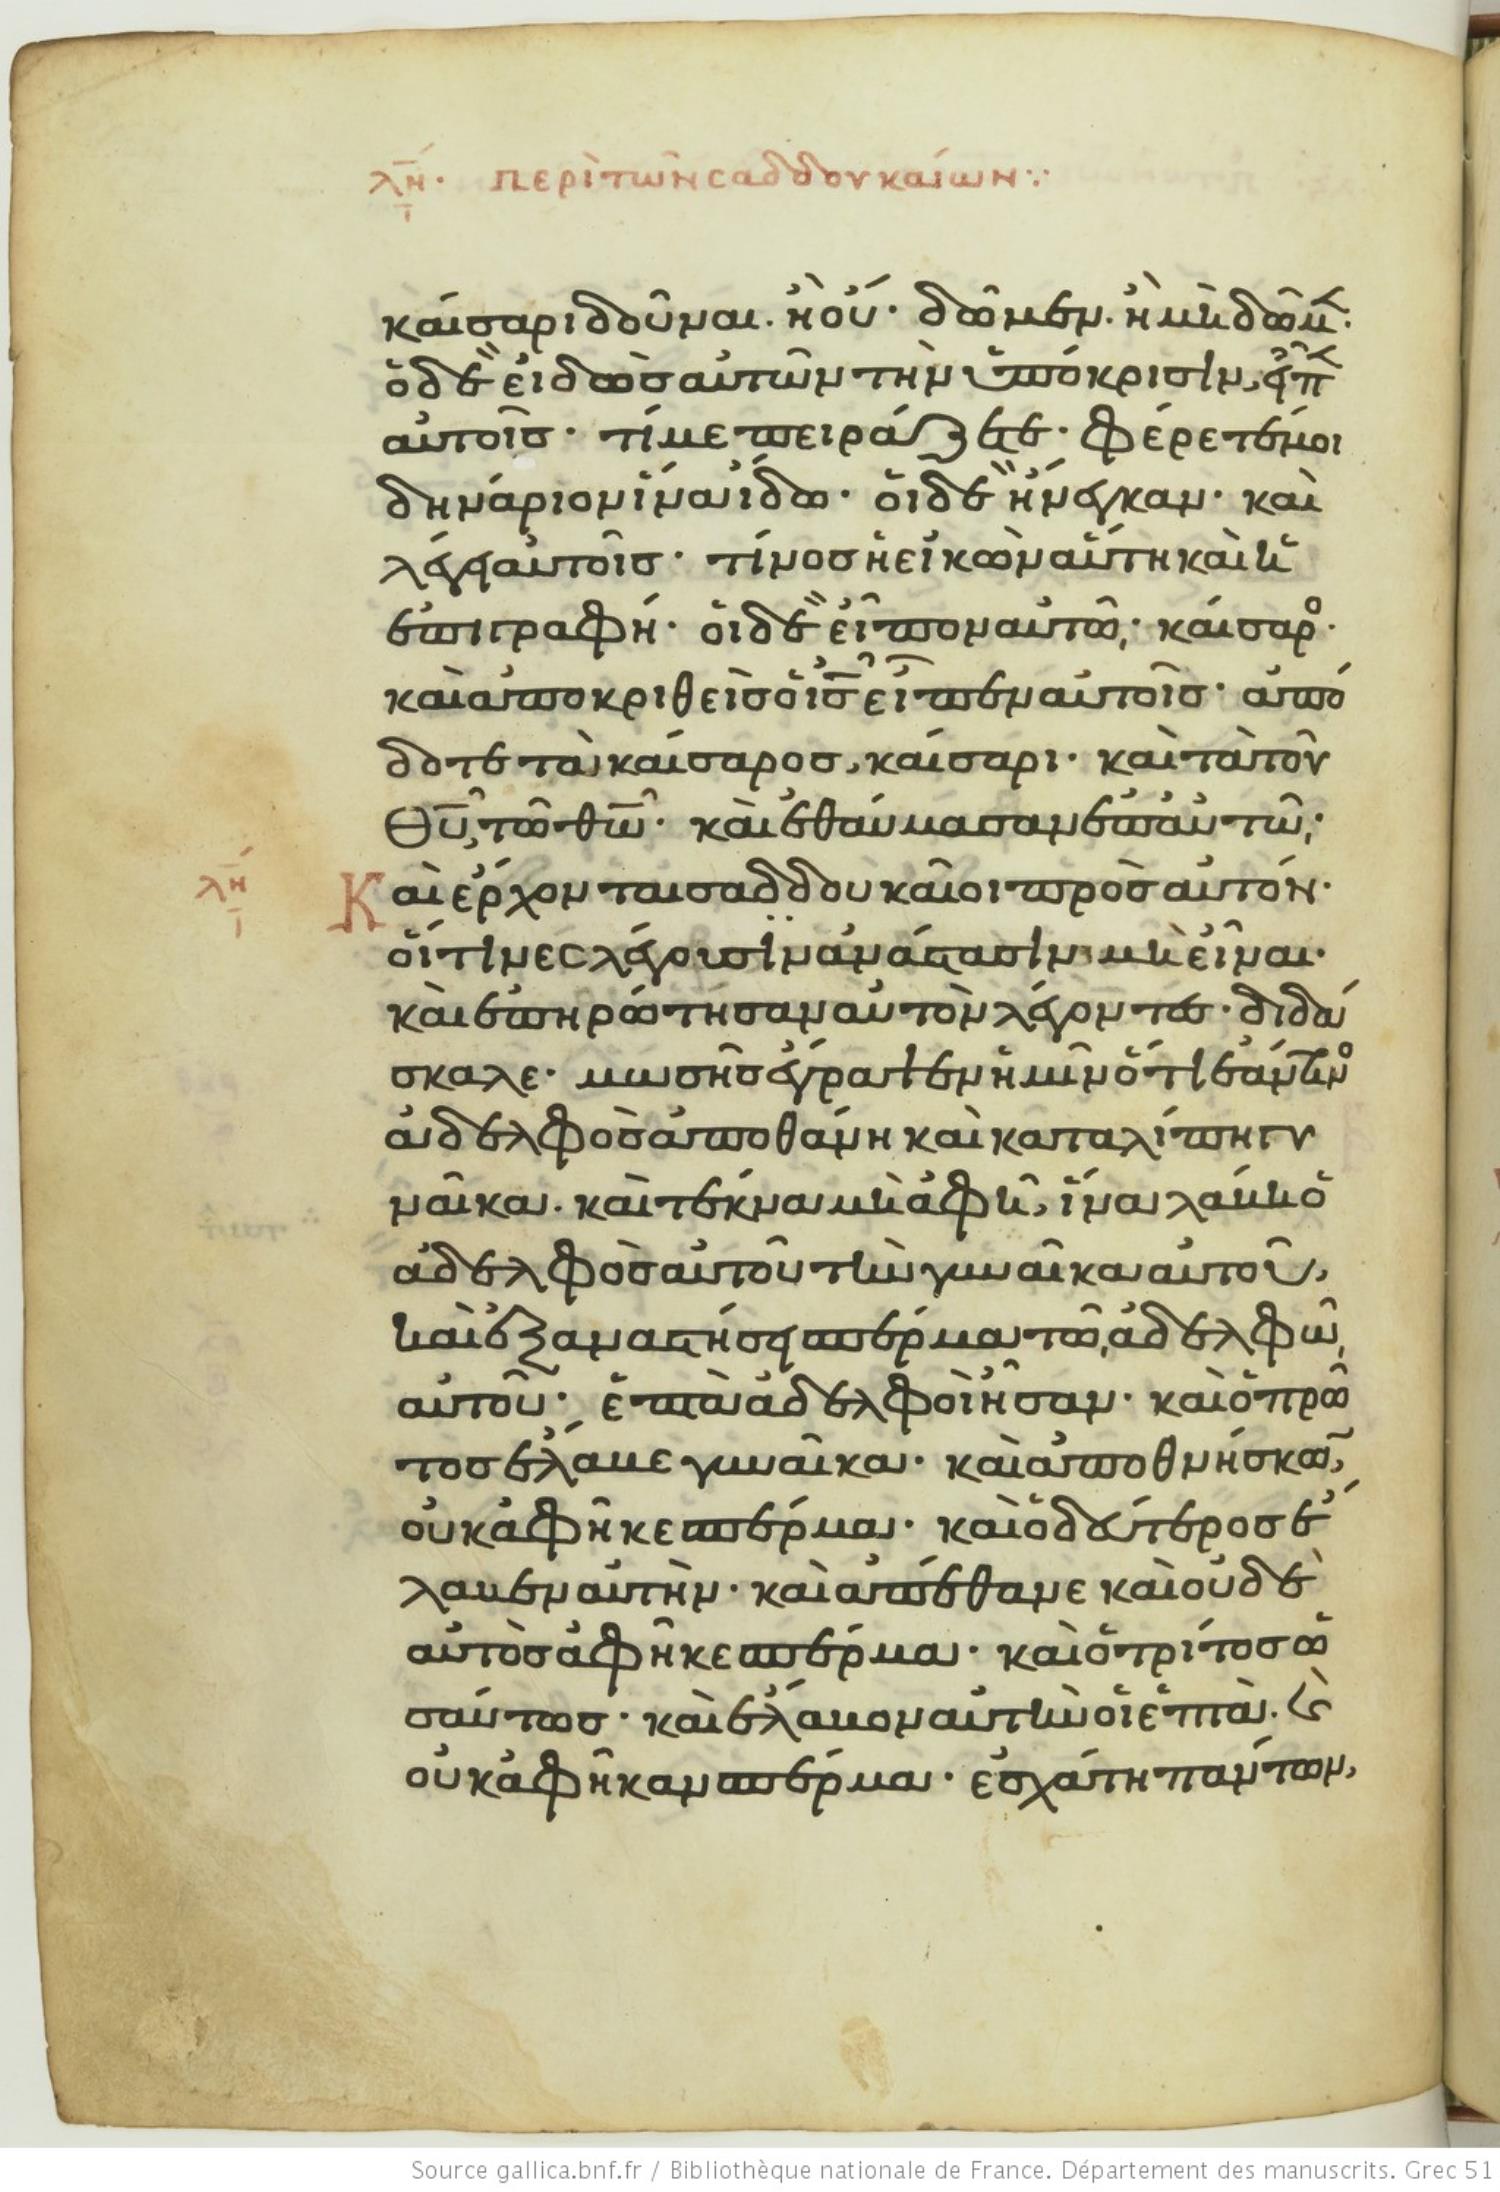 λη· περὶ τῶν σαδδουκαίων ⁘
καίσαρι δοῦναι· ἢ οὔ· δῶμεν· ἢ μὴ δῶμ̅·
ὁ δὲ εἰδὼς αὐτῶν τὴν ὑπόκρισιν, εἶπ
αὐτοῖσ· τί με πειράζετε· φέρετέ μοι
δηνάριον ἵνα ἴδω· οἱ δὲ ἤνεγκαν· καὶ
λέγει αὐτοῖσ· τίνοσ ἡ εἰκὼν αὕτη καὶ ἡ
ἐπιγραφή· οἱ δὲ εἶπον αὐτῶ· καίσαρο·
καὶ ἀποκριθεὶσ ὁ ι̅σ̅ εἶπεν αὐτοῖσ· ἀπό
δοτε τὰ καίσαροσ, καίσαρι· καὶ τὰ τοῦ
θ̅υ̅, τῶ θ̅ω̅· καὶ ἐθαύμασαν ἐπ' αὐτῶ·
λη Καὶ ἔρχονται σαδδουκαῖοι πρὸσ αὐτόν·
οἵτινεσ λέγουσϊν ἀνάστασιν μὴ εἶναι·
καὶ ἐπηρώτησαν αὐτὸν λέγοντεσ· διδά
σκαλε· μωσῆσ ἔγραψεν ἡμῖν ὅτι ἐάν τινο
ἀδελφὸσ ἀποθάνη καὶ καταλίπη γυ
ναῖκα· καὶ τέκνα μὴ ἀφῆ, ἵνα λάβη ὁ
ἀδελφὸσ αὐτοῦ τὴν γυναῖκα αὐτοῦ,
καὶ ἐξαναστήσει σπέρμα τῶ ἀδελφῶ
αὐτοῦ· ἑπτὰ ἀδελφοὶ ἦσαν· καὶ ὁ πρῶ
τοσ ἔλαβε γυναῖκα· καὶ ἀποθνήσκω̅,
οὐκ ἀφῆκε σπέρμα· καὶ ὁ δεύτεροσ ἔ
λαβεν αὐτὴν· καὶ ἀπέθανε καὶ οὐδὲ
αὐτὸσ ἀφῆκε σπέρμα· καὶ ὁ τρίτοσ ὡ
σαύτωσ· καὶ ἔλαβον αὐτὴν οἱ ἑπτὰ· ϗ
οὐκ ἀφῆκαν σπέρμα· ἐσχάτη πάντων,
Source gallica.bnf.fr / Bibliothèque nationale de France. Département des manuscrits. Grec 51